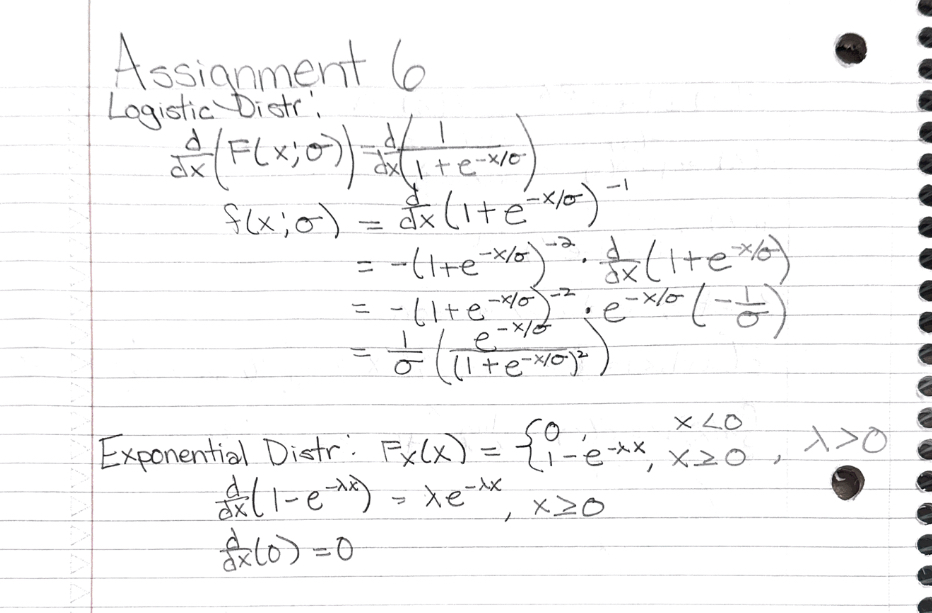 Assignment 6
Logistic Distr:
d/dx (F(x;σ)) = d/dx (1/(1 + e^(-x/σ)))
f(x;σ) = d/dx (1 + e^(-x/σ))^(-1)
= -(1+e^(-x/σ))^(-2) · d/dx (1 + e^(-x/σ))
= -(1+e^(-x/σ))^(-2) · e^(-x/σ) (-1/σ)
= 1/σ (e^(-x/σ)/(1 + e^(-x/σ))²)
Exponential Distr: F_X(x) = { 0, x<0; 1-e^(-λx), x≥0 , λ>0
d/dx (1-e^(-λx)) = λe^(-λx), x≥0
d/dx (0) = 0